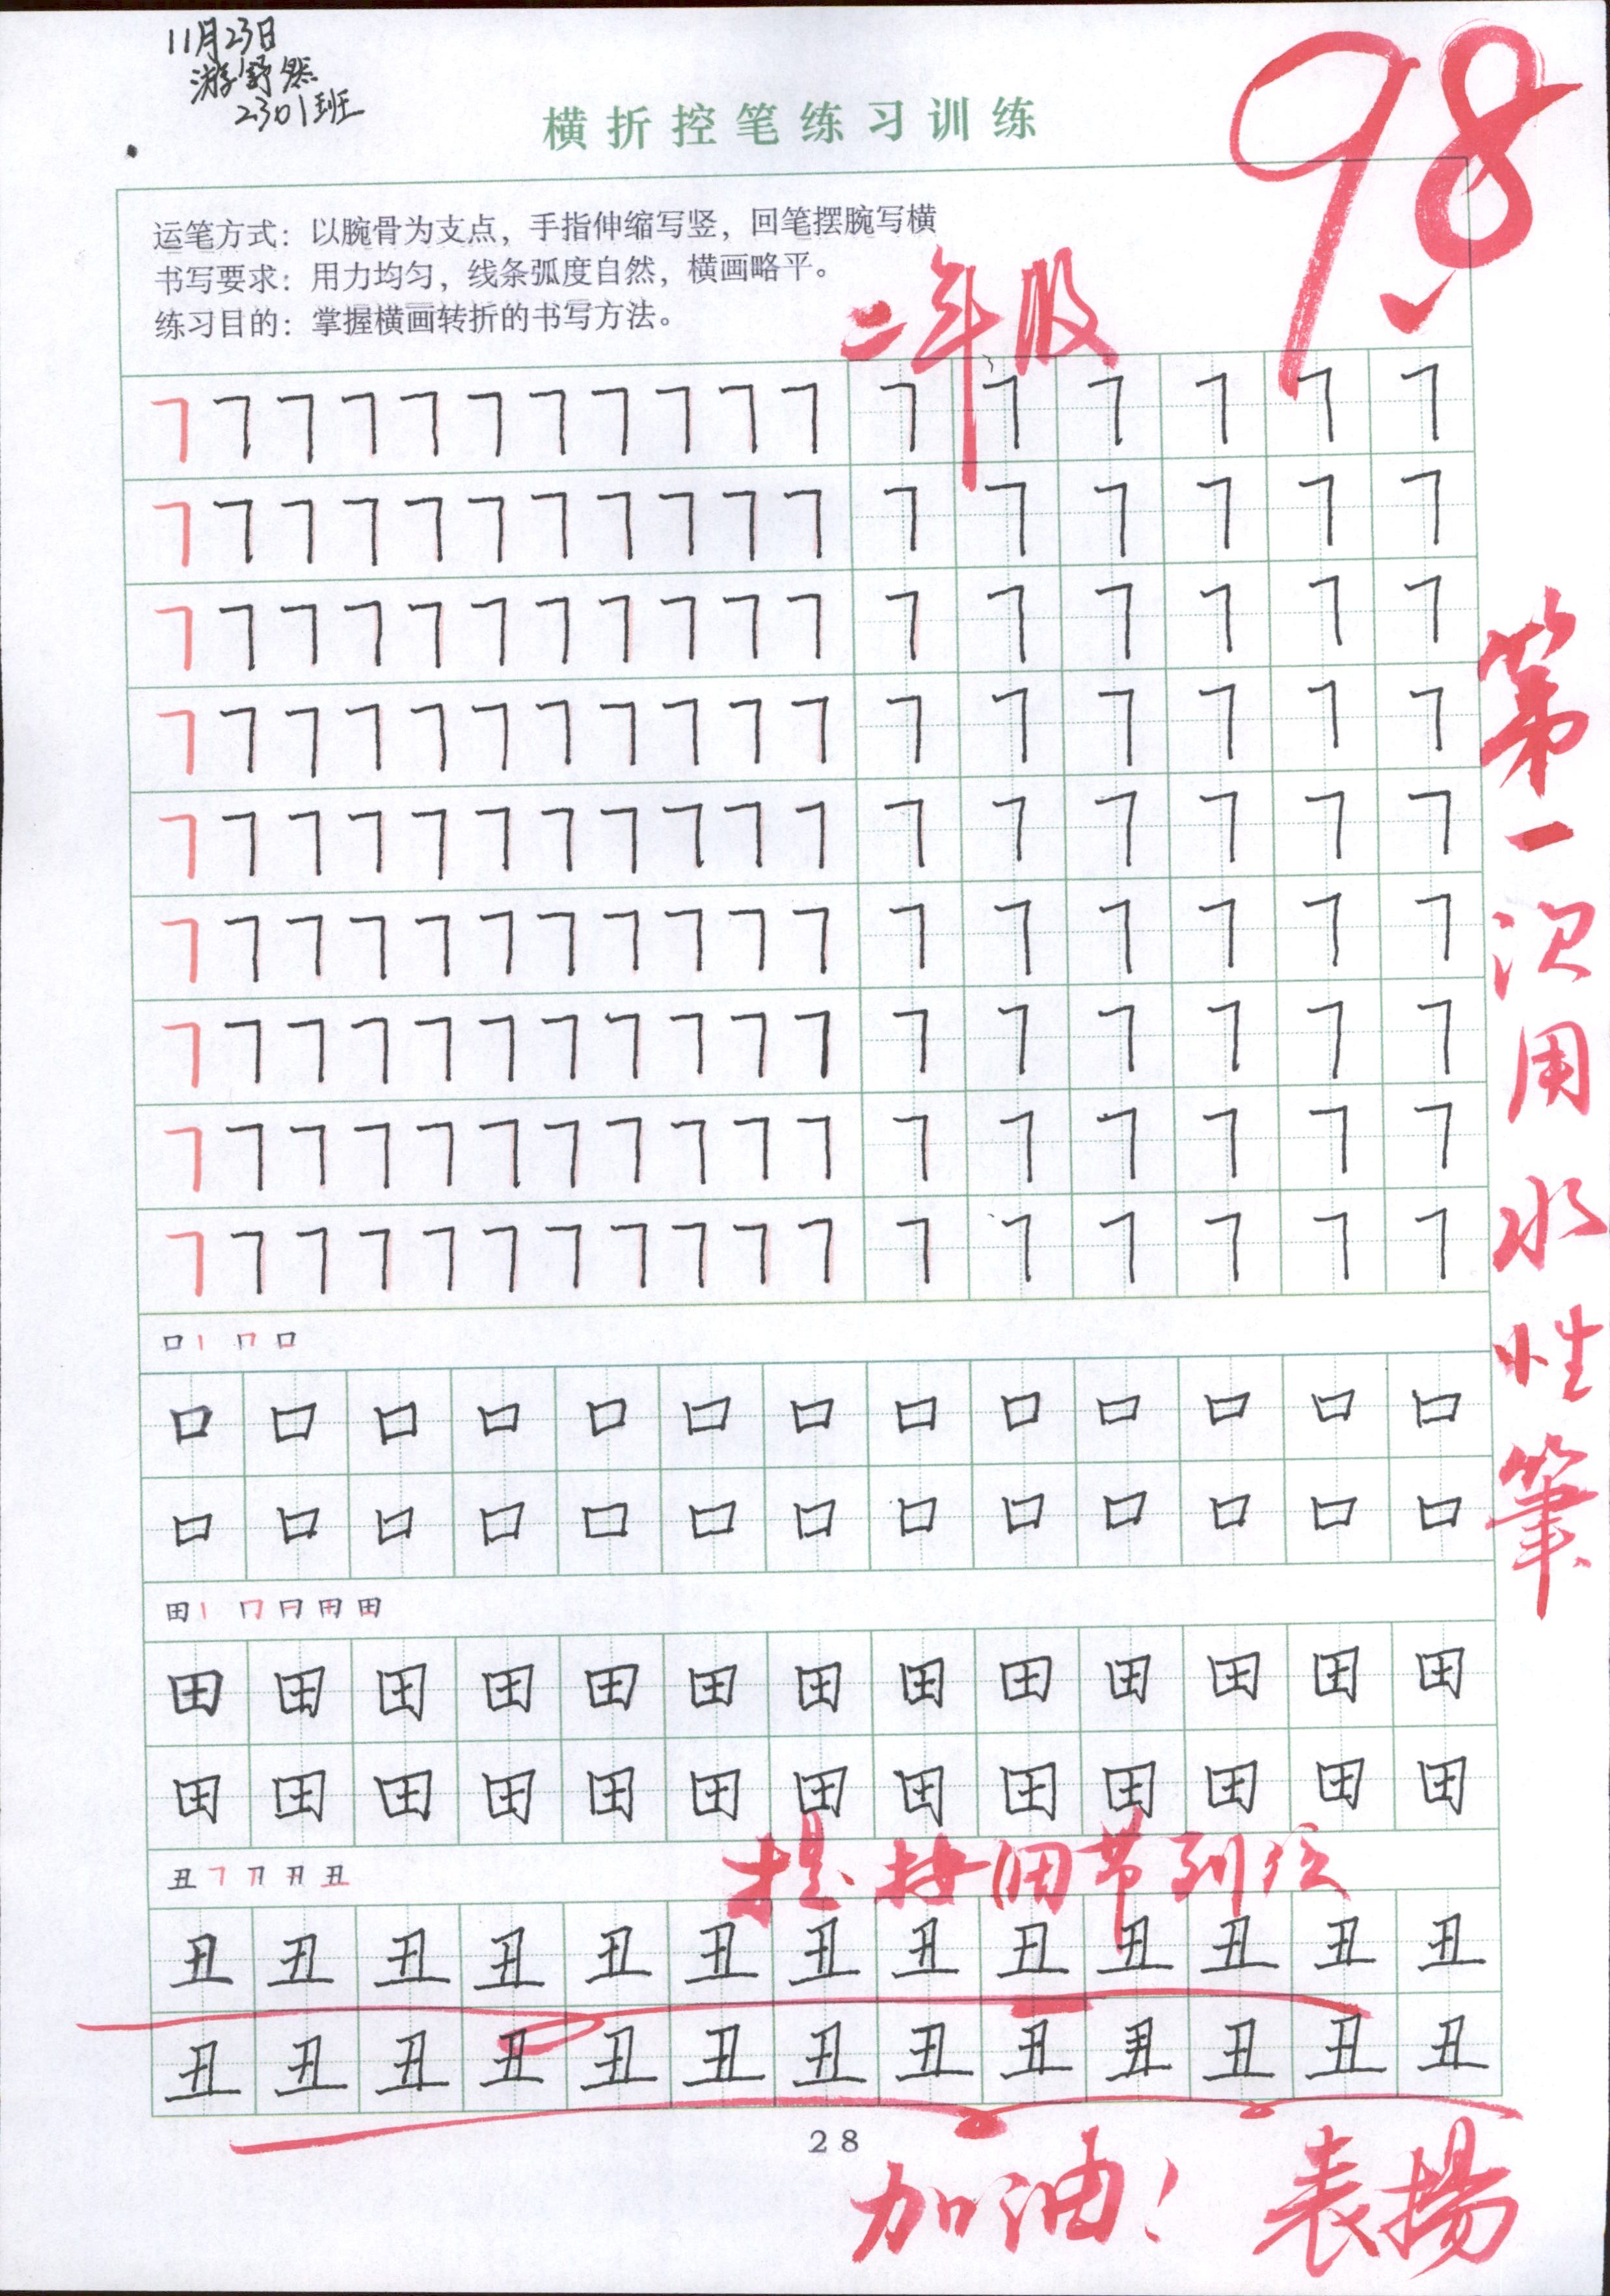 11月23日
游舒然
2301班
98
横折控笔练习训练
运笔方式：以腕骨为支点，手指伸缩写竖，回笔摆腕写横
书写要求：用力均匀，线条弧度自然，横画略平。
练习目的：掌握横画转折的书写方法。
二年级
㇕㇕㇕㇕㇕㇕㇕㇕㇕㇕㇕㇕㇕㇕㇕㇕㇕
㇕㇕㇕㇕㇕㇕㇕㇕㇕㇕㇕㇕㇕㇕㇕㇕㇕
㇕㇕㇕㇕㇕㇕㇕㇕㇕㇕㇕㇕㇕㇕㇕㇕㇕
㇕㇕㇕㇕㇕㇕㇕㇕㇕㇕㇕㇕㇕㇕㇕㇕㇕
㇕㇕㇕㇕㇕㇕㇕㇕㇕㇕㇕㇕㇕㇕㇕㇕㇕
㇕㇕㇕㇕㇕㇕㇕㇕㇕㇕㇕㇕㇕㇕㇕㇕㇕
㇕㇕㇕㇕㇕㇕㇕㇕㇕㇕㇕㇕㇕㇕㇕㇕㇕
㇕㇕㇕㇕㇕㇕㇕㇕㇕㇕㇕㇕㇕㇕㇕㇕㇕
㇕㇕㇕㇕㇕㇕㇕㇕㇕㇕㇕㇕㇕㇕㇕㇕㇕
第一次用水性筆
口 丨 ㇕ 口
口口口口口口口口口口口口口
口口口口口口口口口口口口口
田 丨 冂 日 田 田
田田田田田田田田田田田田田
田田田田田田田田田田田田田
丑 ㇕ 刀 丑 丑
提按调节到位
丑丑丑丑丑丑丑丑丑丑丑丑丑
丑丑丑丑丑丑丑丑丑丑丑丑丑
28
加油！ 表揚